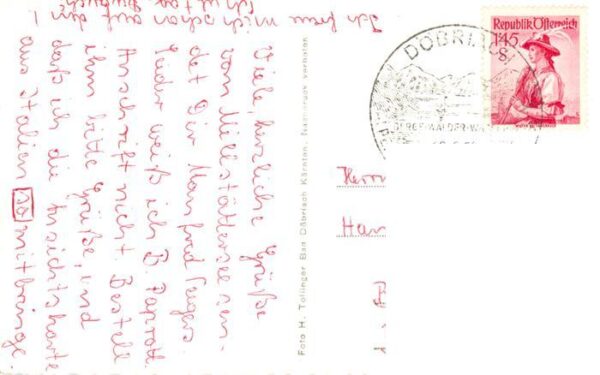 Viele, herzliche Grüße
vom Millstättersee sen-
det Dir Manfred
Leider weiß ich B. Paproth
Anschrift nicht. Bestell
ihm bitte Grüße, und
daß ich die Ansichtskarte
aus Italien mitbringe.
Ich freu mich schon auf
Foto H. Tollinger Bad Döbriach Kärnten. Nachdruck verboten
DÖBRIACH
Republik Österreich
1'45
S
Herrn
Han